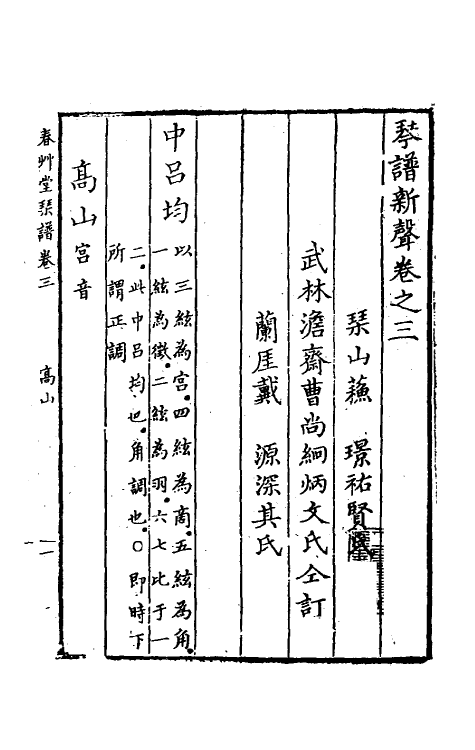 琴譜新聲卷之三
琹山蘓　璟祐賢
武林澹齋曹尚絅炳文氏仝訂
蘭厓戴　源深其氏
中呂均
以三絃為宮。四絃為商。五絃為角。
一絃為徵。二絃為羽。六七比于一
二。此中呂均也。角調也。○即時下
所謂正調
高山宮音
春艸堂琹譜卷三
高山
一